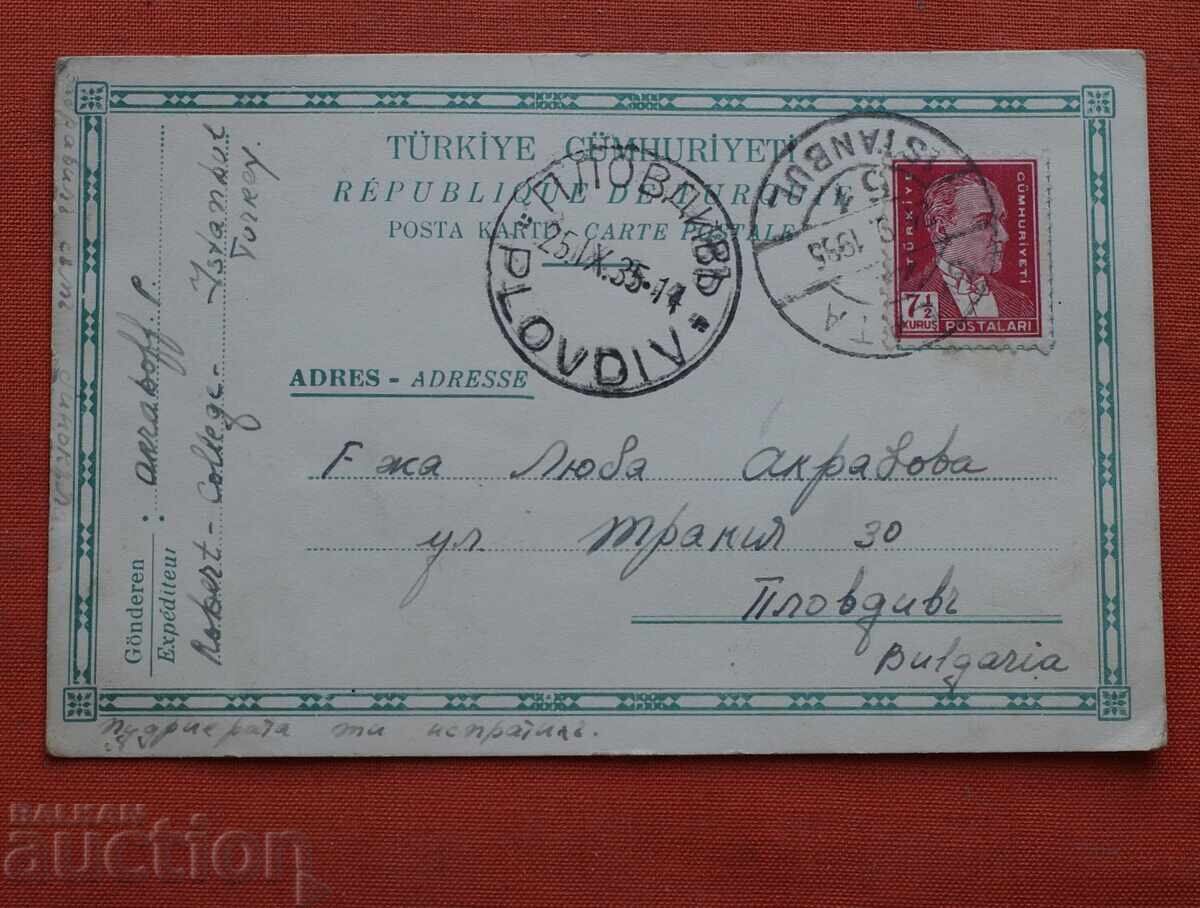 TÜRKİYE CÜMHURİYETİ
RÉPUBLIQUE DE TURQUIE
POSTA KARTI - CARTE POSTALE
ПЛОВДИВЪ
25.IX.35-14
PLOVDIV
ISTANBUL
1935
TÜRKİYE
CÜMHURİYETİ
7½
KURUŞ
POSTALARI
ADRES - ADRESSE
Г-жа Люба Акрабова
ул. Тракия 30
Пловдивъ
Bulgaria
Gönderen
Expéditeur
: Akraboff. P.
Robert - College - Istanbul
Turkey.
Пудриерата ти испратихъ.
BALKAN
auction